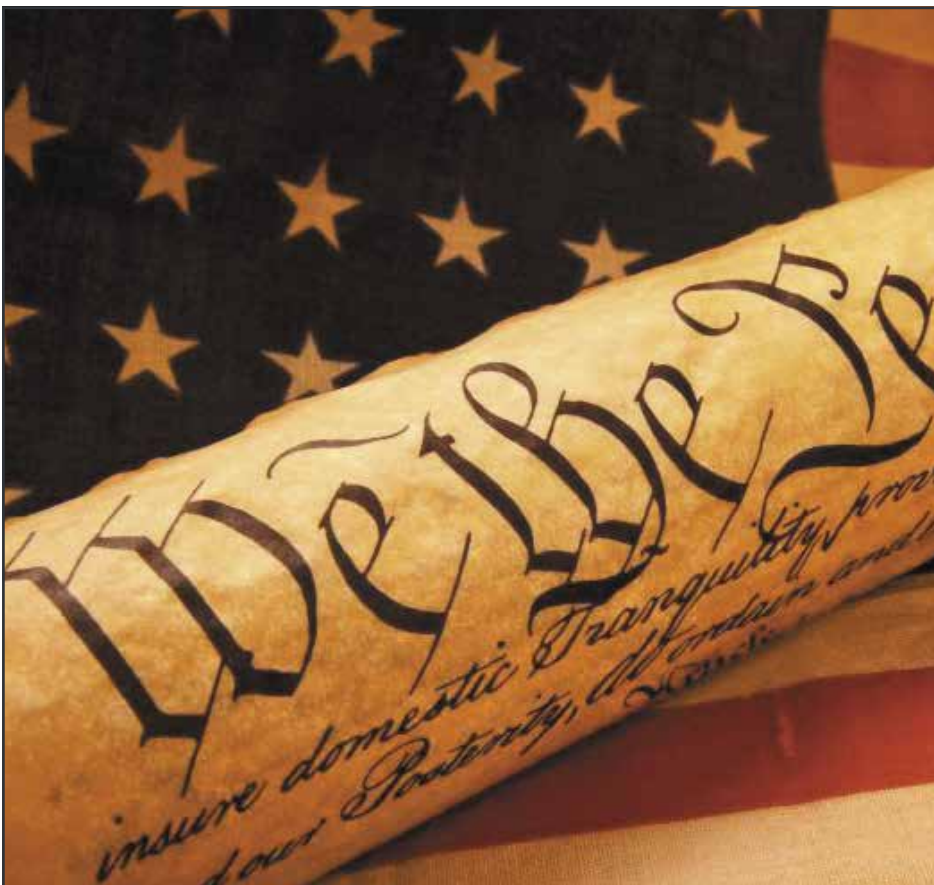 We the Pe
insure domestic Tranquility, prov
d our Posterity, do ordain and